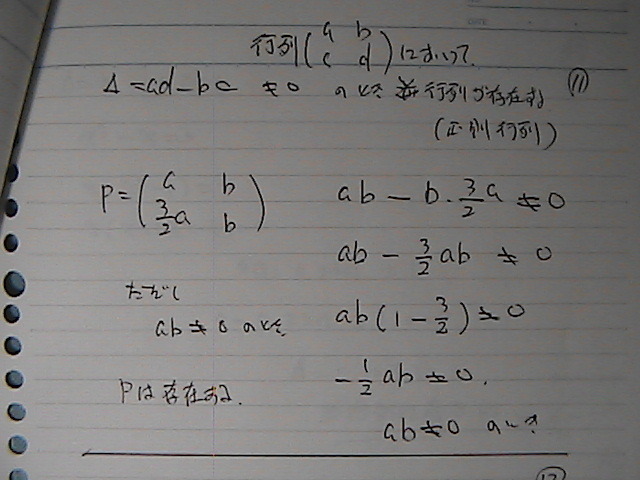 行列(a b
c d)において
Δ=ad-bc ≠0 のとき 逆行列が存在する ⑪
(正則行列)
P=(a b
3/2a b)
ab-b・3/2a≠0
ab-3/2ab≠0
ただし
ab≠0 のとき
ab(1-3/2)≠0
Pは存在する.
-1/2ab≠0.
ab≠0 のとき
⑫